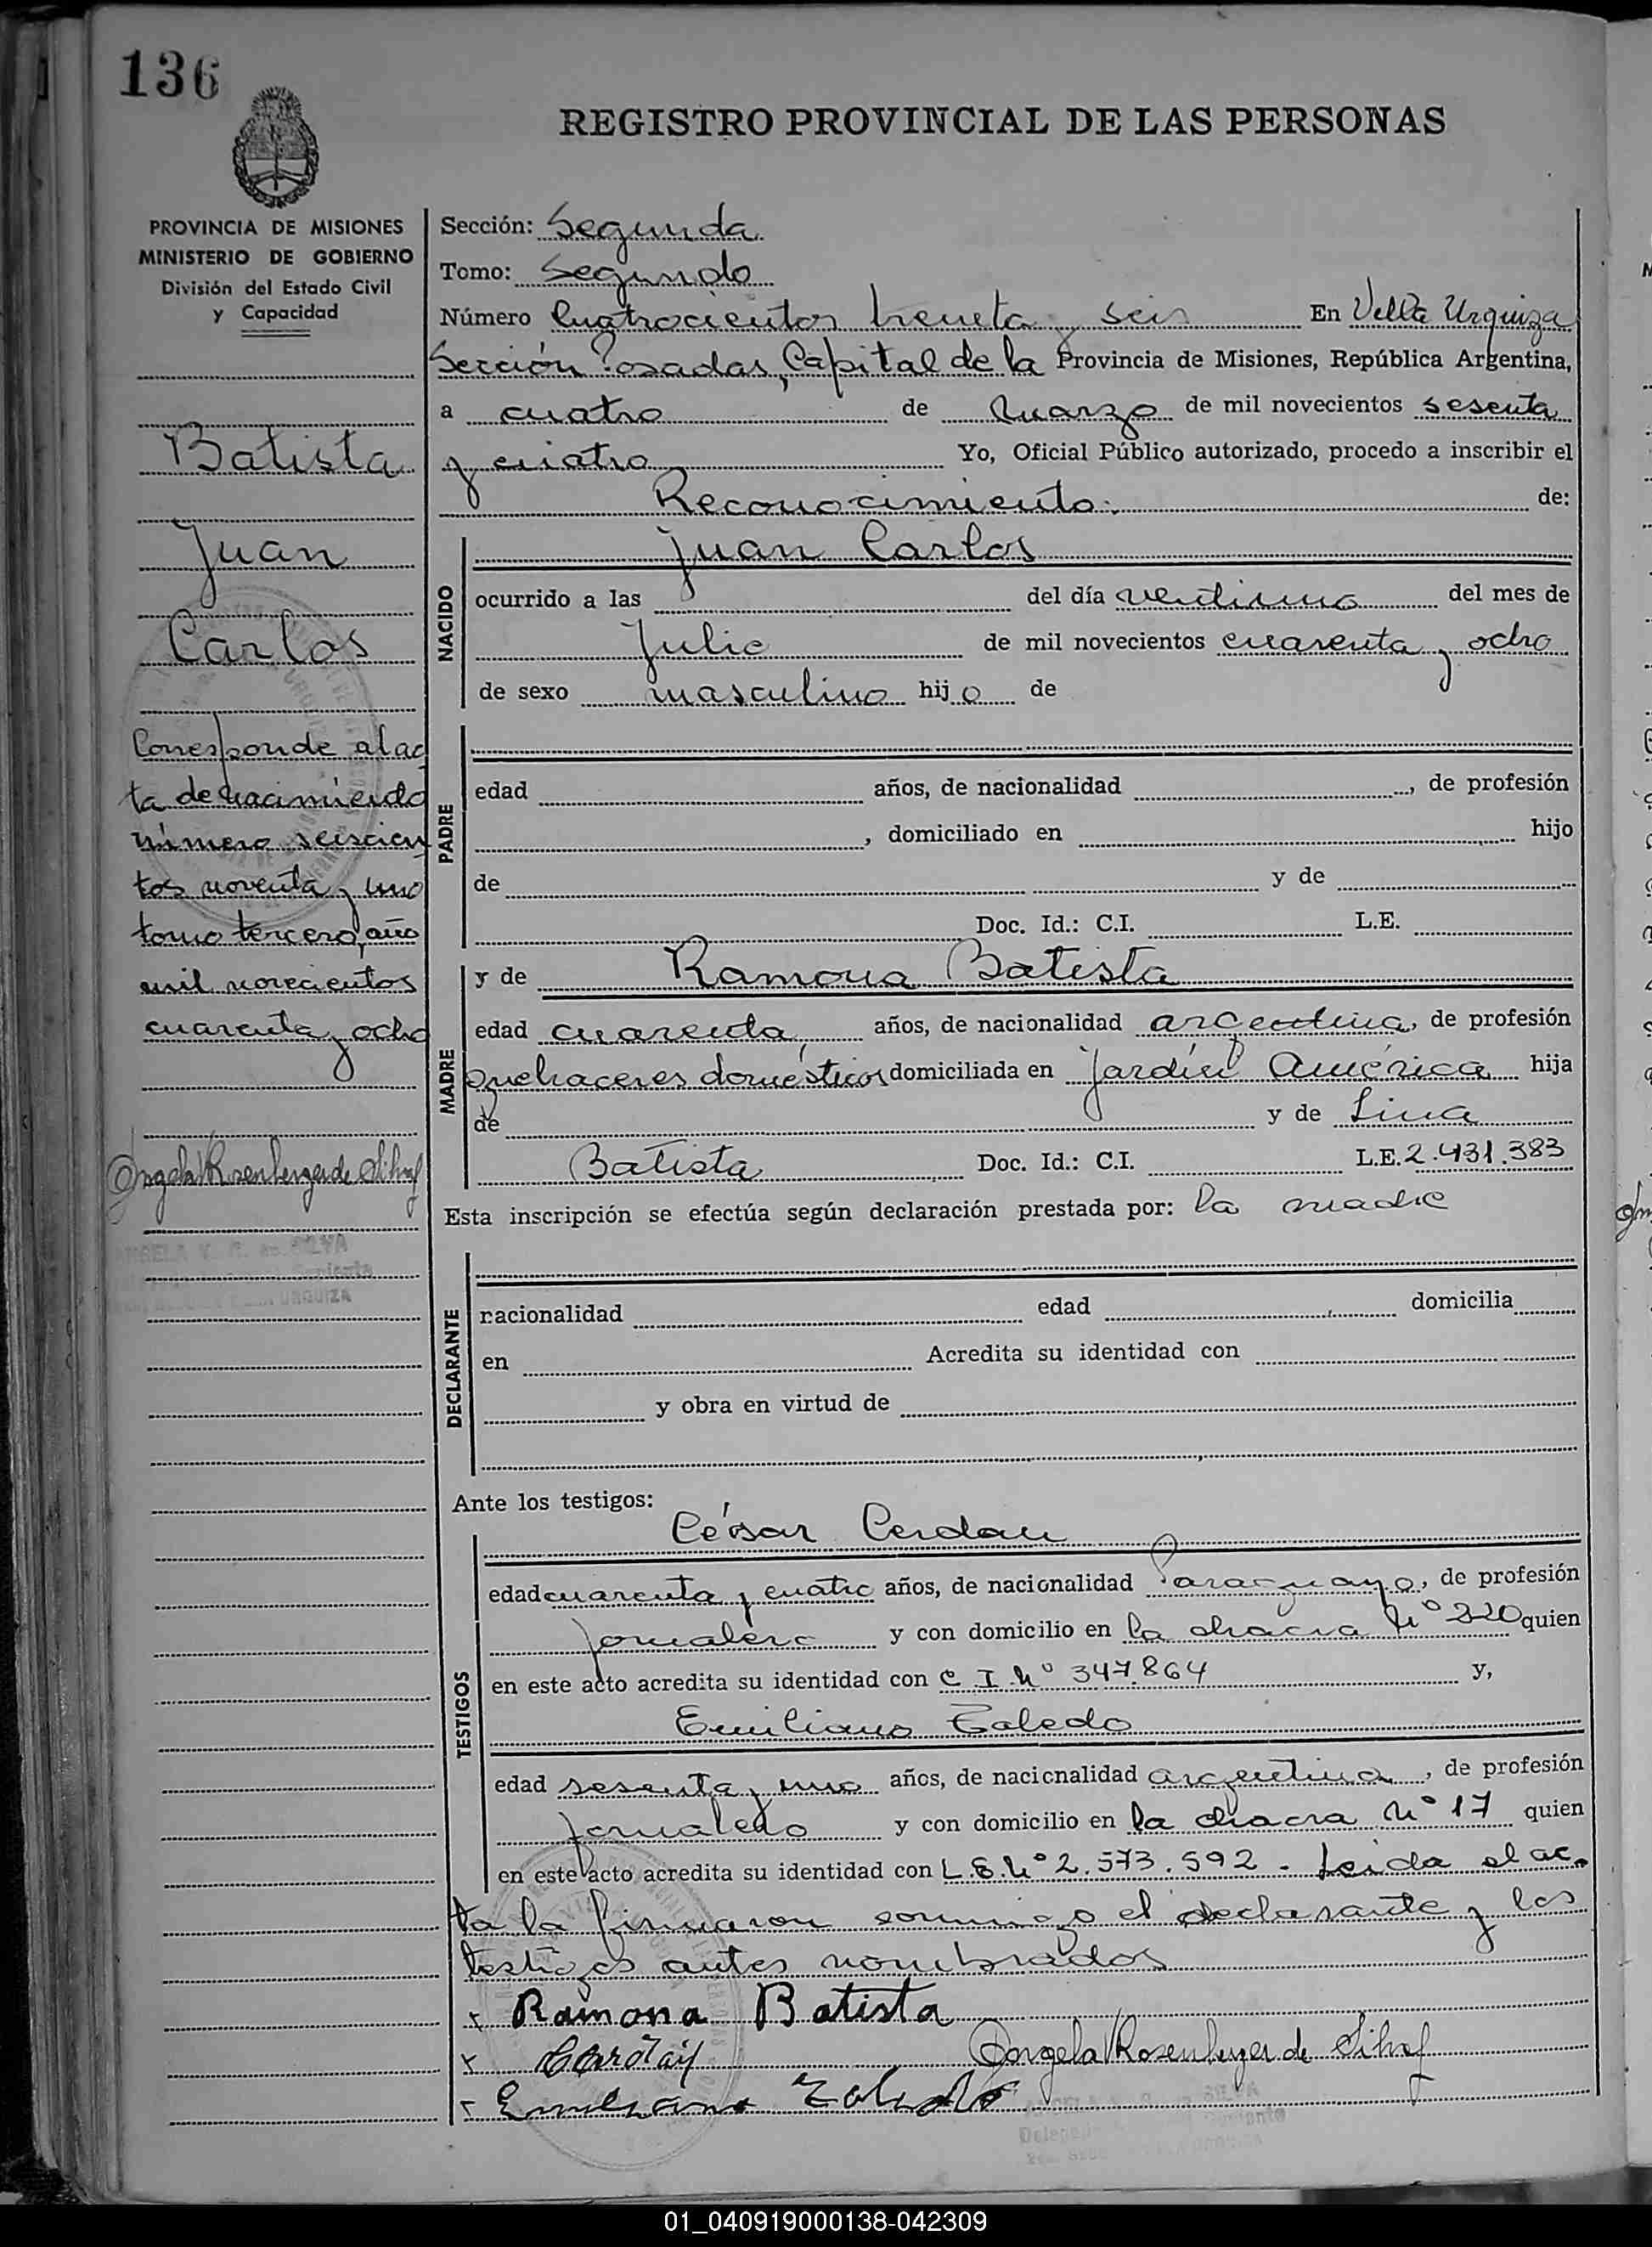 136
REGISTRO PROVINCIAL DE LAS PERSONAS
PROVINCIA DE MISIONES
MINISTERIO DE GOBIERNO
División del Estado Civil
y Capacidad
Batista
Juan
Carlos
Corresponde al ac
ta de nacimiento
número seiscien
tos noventa y uno
tomo tercero, año
mil novecientos
cuarenta y ocho
Angela Rosenberger de Silva
ANGELA V. R. de SILVA
Suplente
URQUIZA
Sección: Segunda
Tomo: Segundo
Número Cuatrocientos treinta y seis En Villa Urquiza
Sección Posadas, Capital de la Provincia de Misiones, República Argentina,
a cuatro de Marzo de mil novecientos sesenta
y cuatro Yo, Oficial Público autorizado, procedo a inscribir el
Reconocimiento. de:
NACIDO
Juan Carlos
ocurrido a las del día ventiuno del mes de
Julio de mil novecientos cuarenta y ocho
de sexo masculino hijo de
PADRE
edad años, de nacionalidad , de profesión
, domiciliado en hijo
de y de
Doc. Id.: C.I. L.E.
MADRE
y de Ramona Batista
edad cuarenta, años, de nacionalidad argentina, de profesión
quehaceres domésticos domiciliada en Jardín América hija
de y de Lina
Batista Doc. Id.: C.I. L.E. 2.431.383
Esta inscripción se efectúa según declaración prestada por: la madre
DECLARANTE
racionalidad edad domicilia
en Acredita su identidad con
y obra en virtud de
Ante los testigos:
TESTIGOS
César Cerdan
edad cuarenta y cuatro años, de nacionalidad Paraguayo, de profesión
jornalero y con domicilio en la chacra Nº 220 quien
en este acto acredita su identidad con C I Nº 347.864 y,
Emiliano Toledo
edad sesenta y uno años, de nacicnalidad argentina, de profesión
jornalero y con domicilio en la chacra Nº 17 quien
en este acto acredita su identidad con L.E. Nº 2.573.592 - Leida el ac-
ta la firmaron conmigo el declarante y los
testigos antes nombrados
x Ramona Batista
x Cerdan Angela Rosenberger de Silva
x Emiliano Toledo
01_040919000138-042309